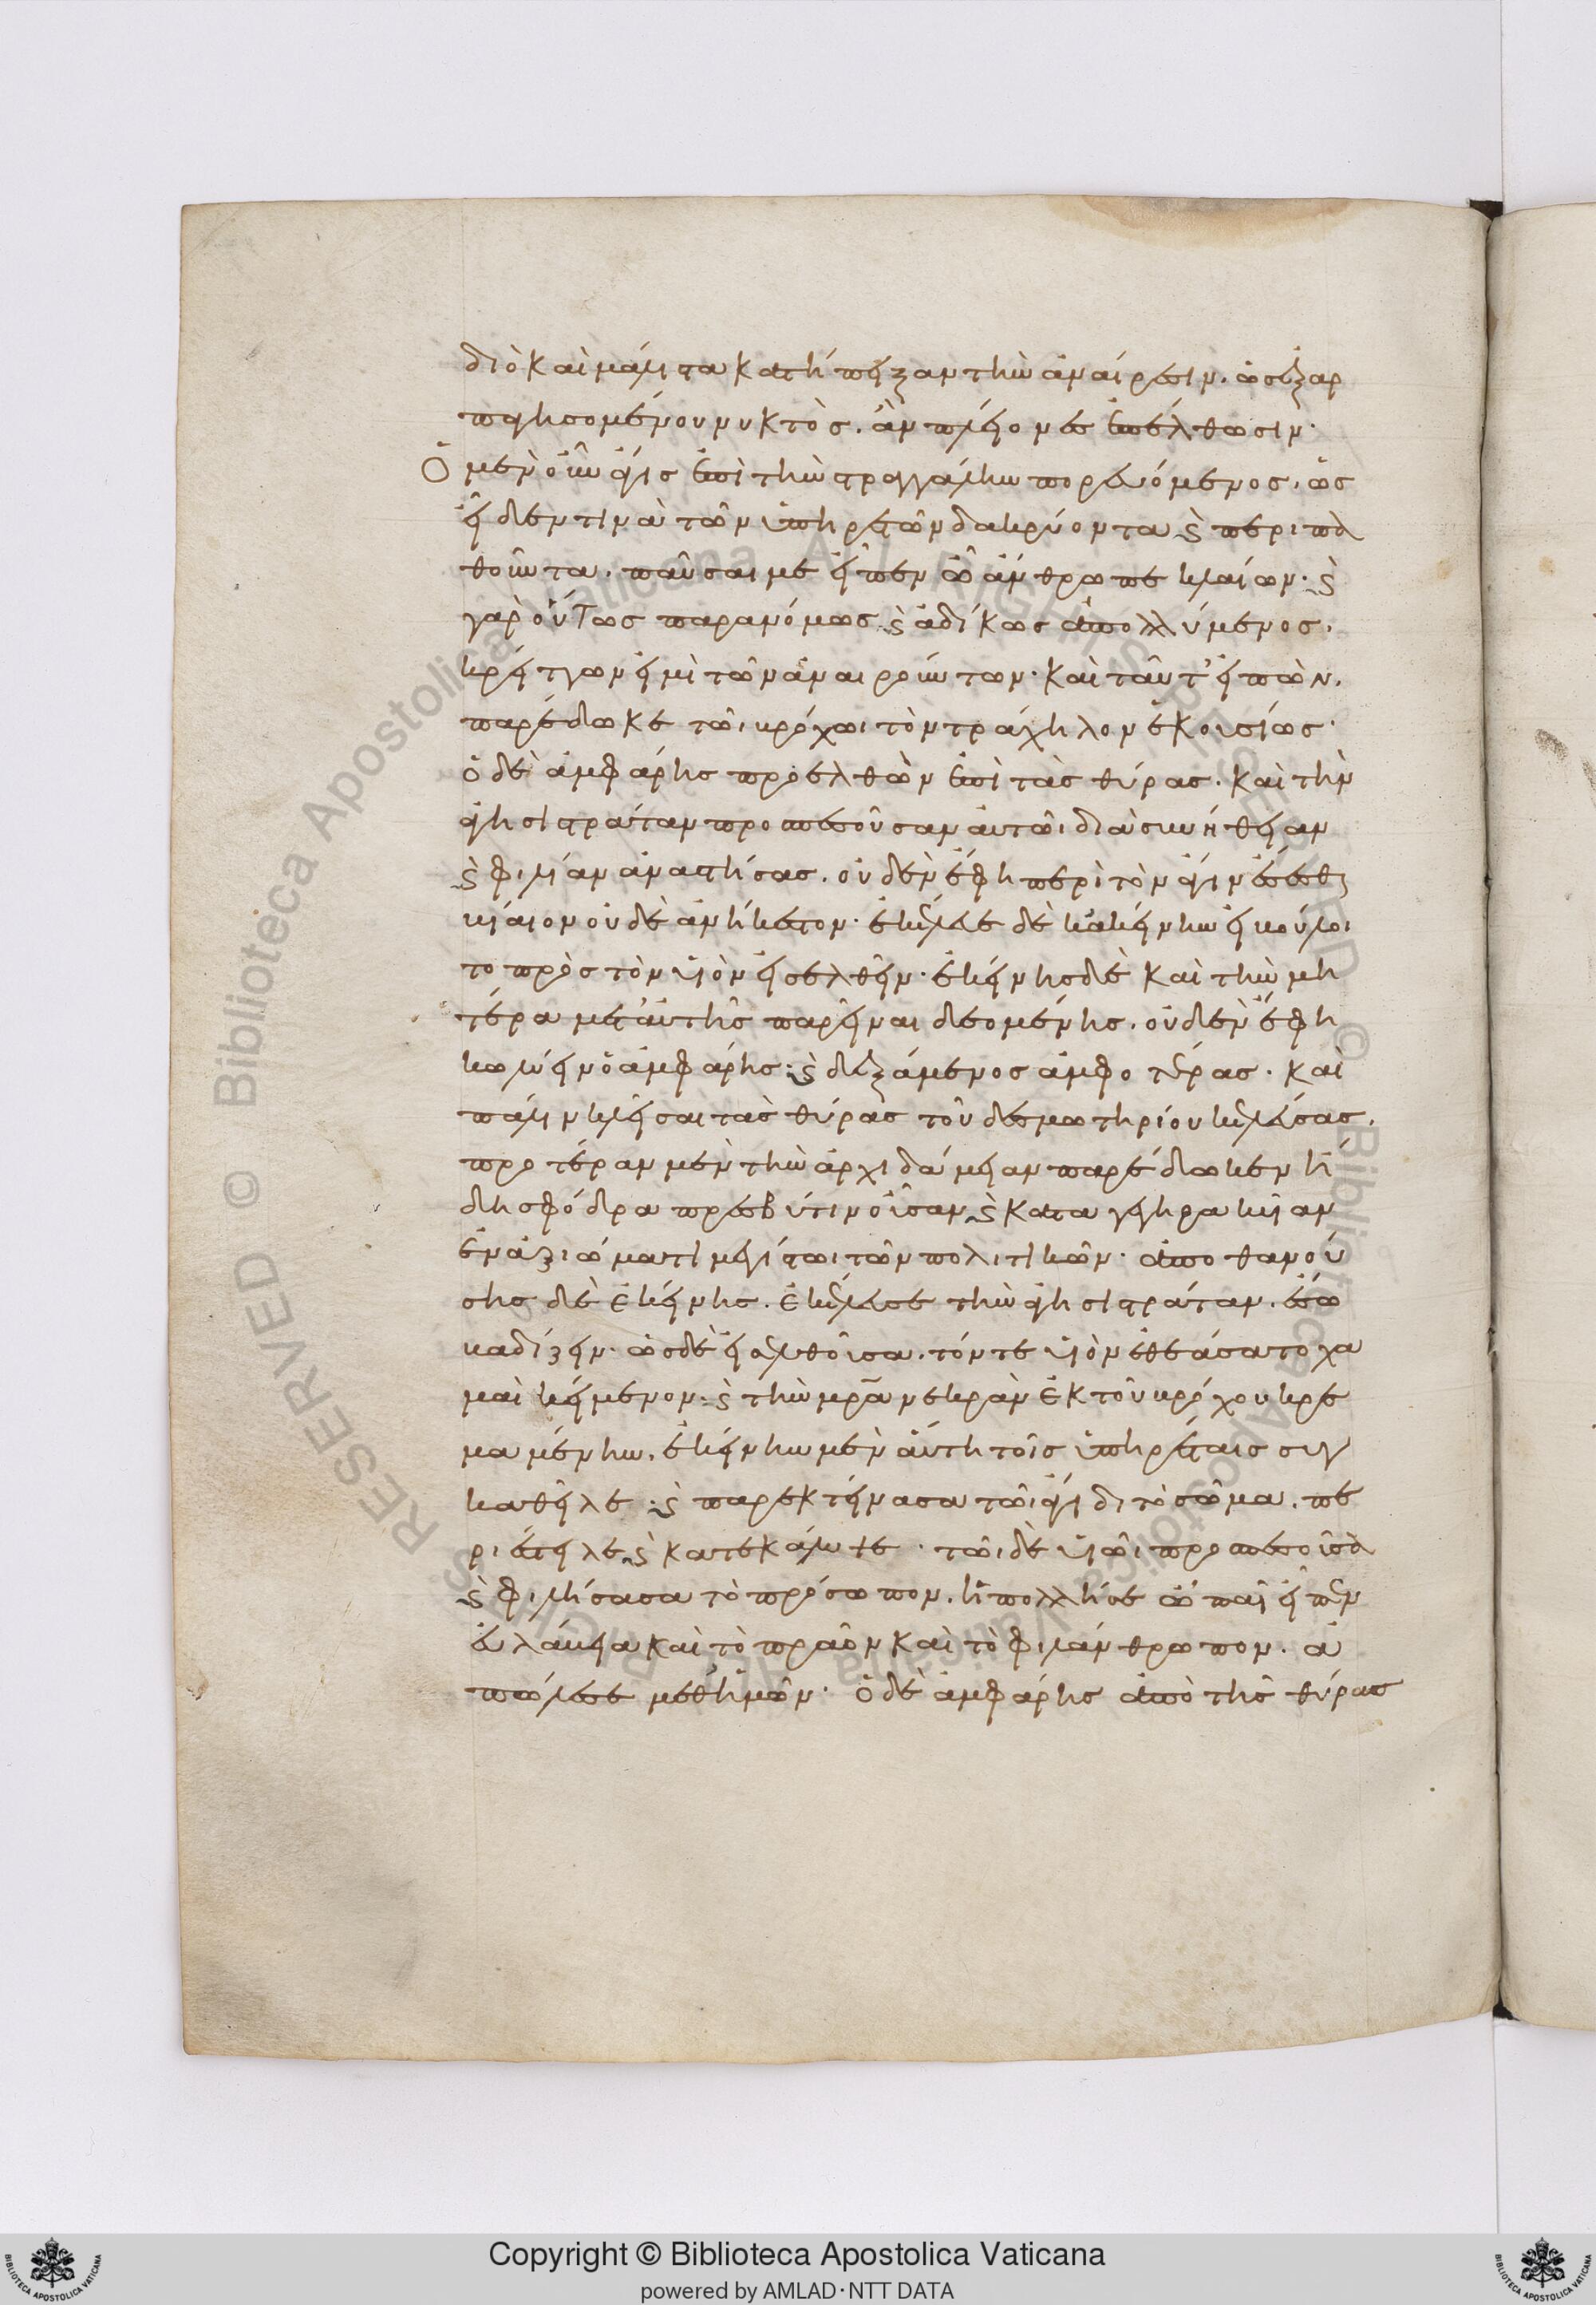 διὸ καὶ μάλιστα κατήπειξαν τὴν ἀναίρεσιν. ὡς ἐξαρ
παγησομένου νυκτὸς. ἂν πλείονες ἐπέλθωσιν·
Ὁ μὲν οὖν ἆγις ἐπὶ τὴν στραγγάλην πορευόμενος, ὡς
εἶδέν τινα τῶν ὑπηρετῶν δακρύοντα ϗ περιπα
θοῦντα. παῦσαί με εἶπεν ὦ ἄνθρωπε κλαίων· ϗ
γὰρ οὕτως παρανόμως ϗ ἀδίκως ἀπολλύμενος.
κρείττων εἰμὶ τῶν ἀναιρούντων· καὶ ταῦτ' εἰπὼν.
παρέδωκε τῶι βρόχωι τὸν τράχηλον ἑκουσίως·
ὁ δὲ ἀμφάρης προελθὼν ἐπὶ τὰς θύρας. καὶ τὴν
ἀγησιστράταν προσπεσοῦσαν αὐτῶι διὰ συνήθειαν
ϗ φιλίαν ἀναστήσας. οὐδὲν ἔφη περὶ τὸν ἆγιν ἔσεσθαι
βίαιον οὐδὲ ἀνήκεστον· ἐκέλευε δὲ κἀκείνην εἰ βούλοι
το πρὸς τὸν υἱὸν εἰσελθεῖν· ἐκείνης δὲ καὶ τὴν μη
τέρα μετ' αὐτῆς παρεῖναι δεομένης. οὐδὲν ἔφη
κωλύειν ὁ ἀμφάρης· ϗ δεξάμενος ἀμφοτέρας. καὶ
πάλιν κλεῖσαι τὰς θύρας τοῦ δεσμωτηρίου κελεύσας.
προτέραν μὲν τὴν ἀρχιδάμειαν παρέδωκεν ἤ
δη σφόδρα πρεσβύτιν οὖσαν ϗ καταγεγηρακυῖαν
ἐν ἀξιώματι μεγίστωι τῶν πολιτικῶν· ἀποθανού
σης δὲ ἐκείνης. ἐκέλευσε τὴν ἀγησιστράταν. ἔσω
βαδίζειν· ὡς δὲ εἰσελθοῦσα. τόν τε υἱὸν ἐθεάσατο χα
μαὶ κείμενον· ϗ τὴν μρ̅α νεκρὰν ἐκ τοῦ βρόχου κρε
μαμένην. ἐκείνην μὲν αὐτὴ τοῖς ὑπηρέταις συγ
καθεῖλε· ϗ παρεκτείνασα τῶι ἄγιδι τὸ σῶμα. πε
ριέστειλε ϗ κατεκάλυψε· τῶι δὲ υἱῶι προσπεσοῦσα
ϗ φιλήσασα τὸ πρόσωπον. ἡ πολλή σε ὦ παῖ εἶπεν
εὐλάβεια καὶ τὸ πρᾶον καὶ τὸ φιλάνθρωπον. ἀ
πώλεσε μεθ' ἡμῶν· ὁ δὲ ἀμφάρης ἀπὸ τῆς θύρας